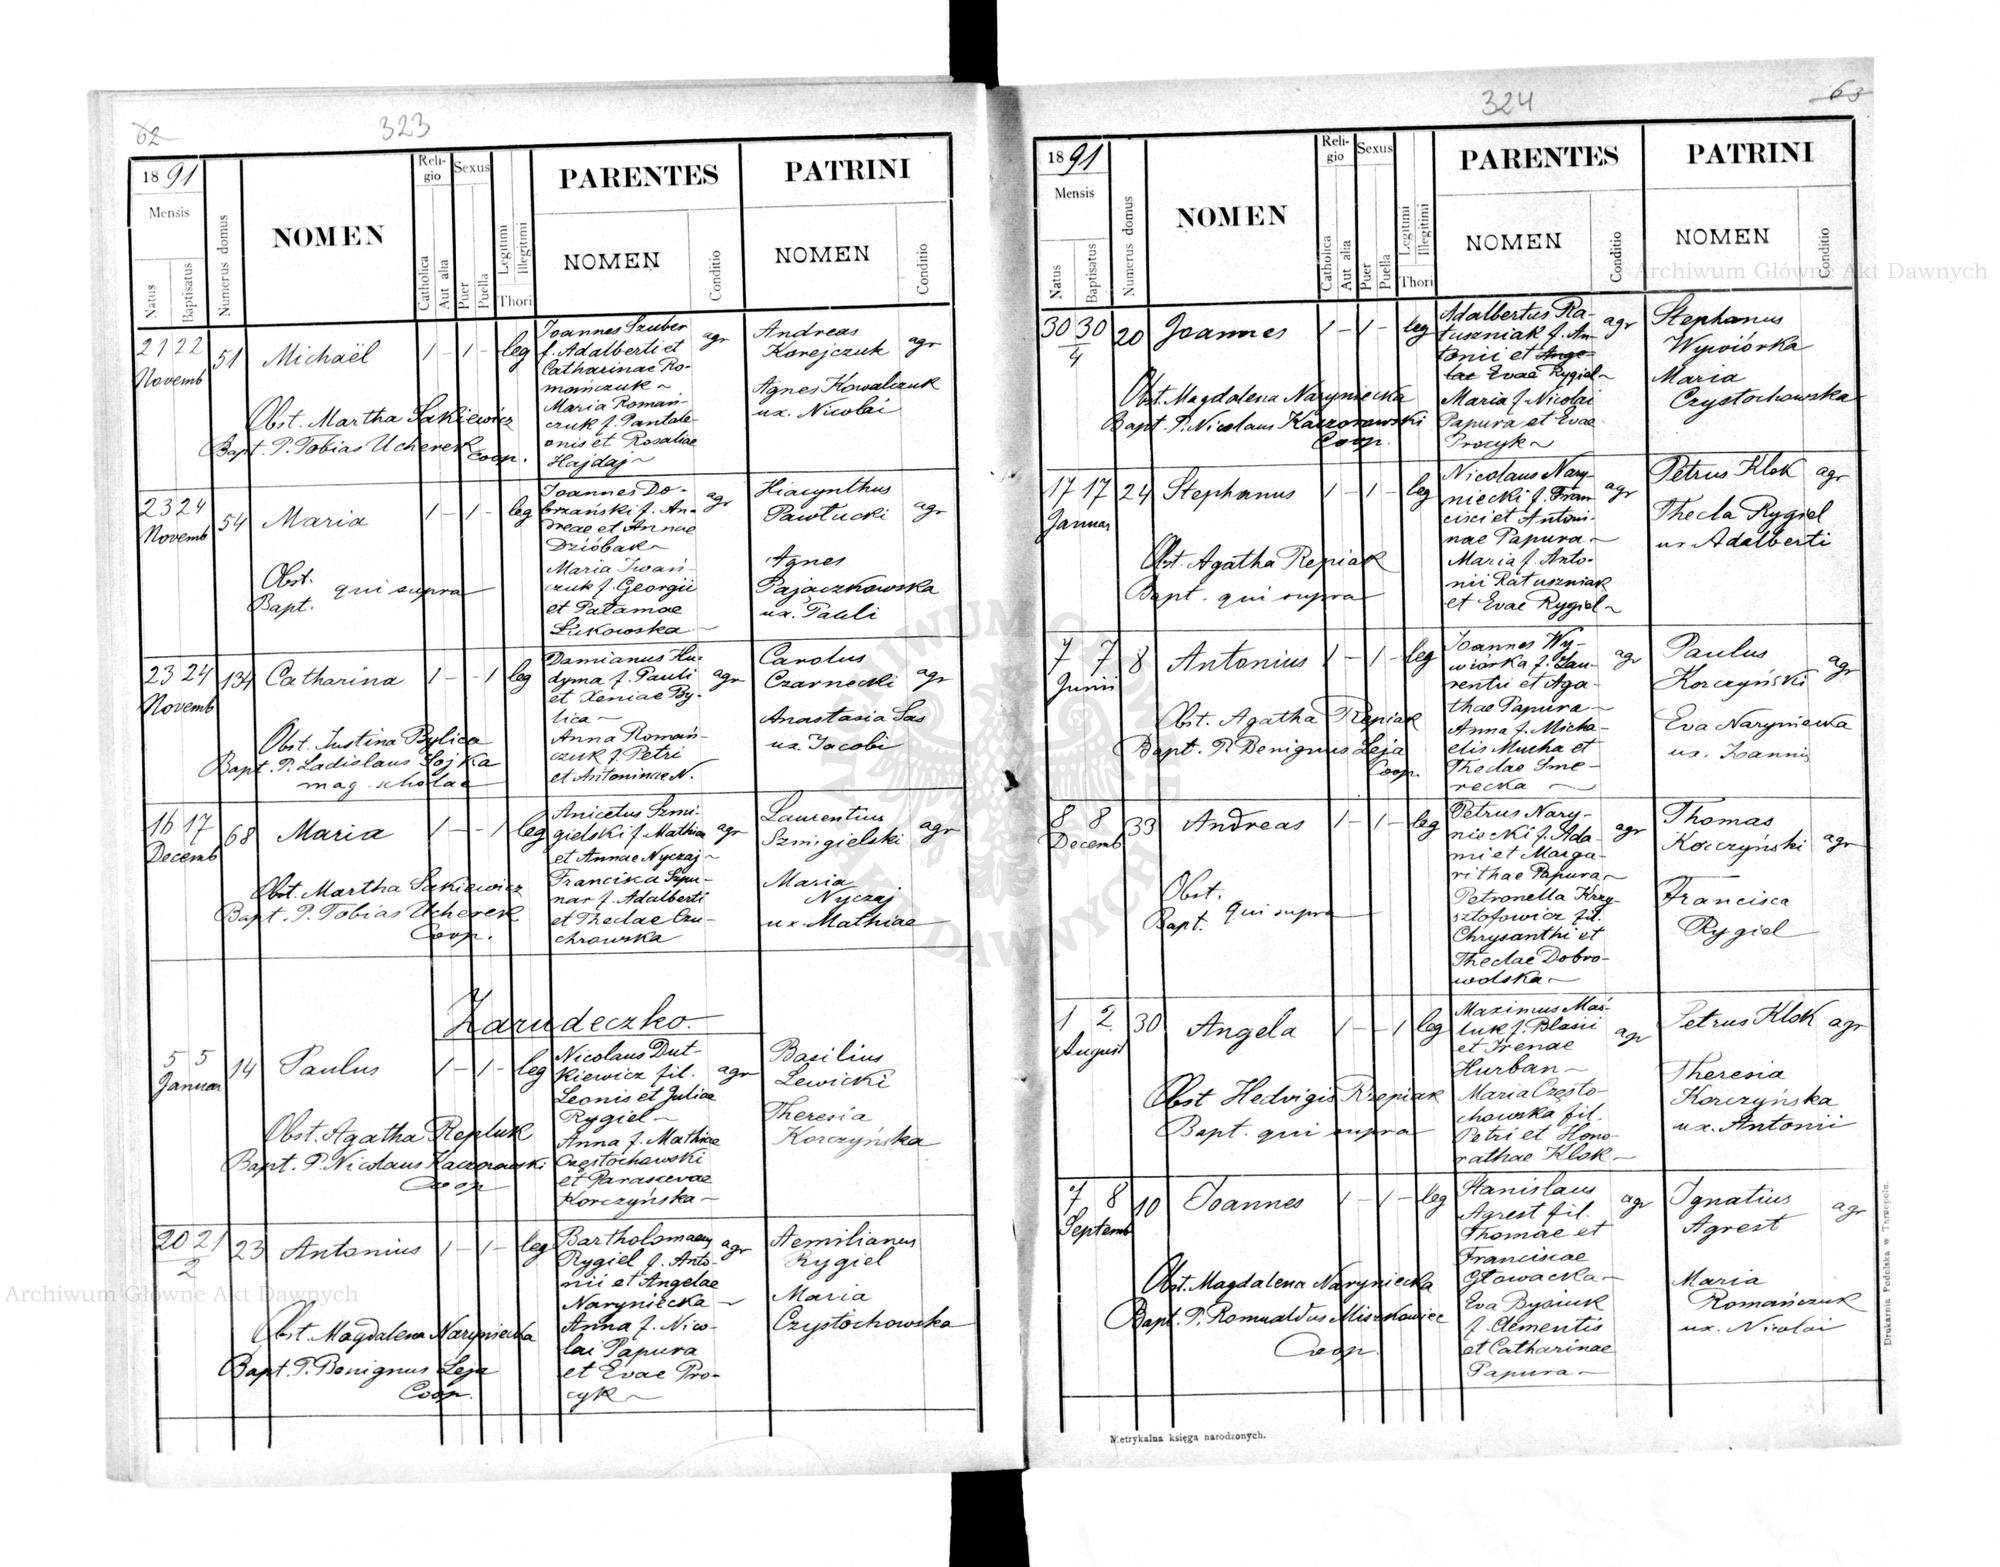 62
323
1891
Mensis
Natus
Baptisatus
Numerus domus
NOMEN
Religio
Catholica
Aut alia
Sexus
Puer
Puella
Legitimi
Illegitimi
Thori
PARENTES
NOMEN
Conditio
PATRINI
NOMEN
Conditio
21 22
Novemb
51
Michaël
1 – 1 –
leg
Joannes Szuber
f. Adalberti et
Catharinae Ro-
mańczuk
Maria Romań-
czuk f. Pantale-
onis et Rosaliae
Hajdaj
agr
Andreas
Korejczuk
agr
Agnes Kowalczuk
ux. Nicolai
Obst. Martha Sakiewicz
Bapt. P. Tobias Ucherek
Coop.
23 24
Novemb
54
Maria
1 – 1 –
leg
Joannes Do-
brzański f. An-
dreae et Annae
Dzióbak
Maria Iwań-
czuk f. Georgii
et Palamae
Łukowska
agr
Hiacynthus
Pawłucki
agr
Agnes
Pajaczkowska
ux. Pauli
Obst.
Bapt. qui supra
23 24
Novemb
134
Catharina
1 – – 1
leg
Damianus Hu-
dyma f. Pauli
et Xeniae By-
lica
Anna Romań-
czuk f. Petri
et Antoninae N.
agr
Carolus
Czarnecki
agr
Anastasia Sas
ux. Jacobi
Obst. Justina Bylica
Bapt. P. Ladislaus Sojka
mag. scholae
16 17
Decemb
68
Maria
1 – – 1
leg
Anicetus Szmi-
gielski f. Mathiae
et Annae Nyczaj
Francisca Szpu-
nar f. Adalberti
et Theclae Czu-
chrowska
agr
Laurentius
Szmigielski
agr
Maria
Nyczaj
ux. Mathiae
Obst. Martha Sakiewicz
Bapt. P. Tobias Ucherek
Coop.
Zarudeczko.
5 5
Januar
14
Paulus
1 – 1 –
leg
Nicolaus Dut-
kiewicz fil.
Leonis et Juliae
Rygiel
Anna f. Mathiae
Częstochowski
et Parascevae
Korczyńska
agr
Basilius
Lewicki
Theresia
Korczyńska
Obst. Agatha Repluk
Bapt. P. Nicolaus Kaczorowski
Coop
20 21
2
23
Antonius
1 – 1 –
leg
Bartholomaeus
Rygiel f. Anto-
nii et Angelae
Naryniecka
Anna f. Nico-
lai Papura
et Evae Pro-
cyk
agr
Aemilianus
Rygiel
Maria
Czystochowska
Obst. Magdalena Naryniecka
Bapt. P. Benignus Leja
Coop.
63
324
1891
Mensis
Natus
Baptisatus
Numerus domus
NOMEN
Religio
Catholica
Aut alia
Sexus
Puer
Puella
Legitimi
Illegitimi
Thori
PARENTES
NOMEN
Conditio
PATRINI
NOMEN
Conditio
30 30
4
20
Joannes
1 – 1 –
leg
Adalbertus Ra-
tuszniak f. An-
tonii et Ange-
lae Evae Rygiel
Maria f. Nicolai
Papura et Evae
Procyk
agr
Stephanus
Wywiórka
Maria
Czystochowska
Obst. Magdalena Naryniecka
Bapt. P. Nicolaus Kaczorowski
Coop.
17 17
Januar
24
Stephanus
1 – 1 –
leg
Nicolaus Nary-
niecki f. Fran-
cisci et Antoni-
nae Papura
Maria f. Anto-
nii Ratuszniak
et Evae Rygiel
agr
Petrus Klok
agr
Thecla Rygiel
ux Adalberti
Obst. Agatha Repiak
Bapt. qui supra
7 7
Junii
8
Antonius
1 – 1 –
leg
Joannes Wy-
wiórka f. Lau-
rentii et Aga-
thae Papura
Anna f. Micha-
elis Mucha et
Theclae Sme-
recka
agr
Paulus
Korczyński
agr
Eva Naryniecka
ux. Joannis
Obst. Agatha Repiak
Bapt. P. Benignus Leja
Coop.
8 8
Decemb
33
Andreas
1 – 1 –
leg
Petrus Nary-
niecki f. Ada-
mi et Marga-
rithae Papura
Petronella Krzy-
sztofowicz fil.
Chrysanthi et
Theclae Dobro-
wolska
agr
Thomas
Korczyński
agr
Francisca
Rygiel
Obst.
Bapt. qui supra
1 2
August
30
Angela
1 – – 1
leg
Maximus Maś-
luk f. Blasii
et Irenae
Hurban
Maria Często-
chowska fil.
Petri et Hono-
rathae Klok
agr
Petrus Klok
agr
Theresia
Korczyńska
ux. Antonii
Obst Hedvigis Rzepiak
Bapt. qui supra
7 8
Septemb
10
Joannes
1 – 1 –
leg
Stanislaus
Agrest fil.
Thomae et
Franciscae
Głowacka
Eva Bysiuk
f. Clementis
et Catharinae
Papura
agr
Ignatius
Agrest
agr
Maria
Romańczuk
ux. Nicolai
Obst. Magdalena Naryniecka
Bapt. P. Romualdus Miszkowiec
Coop.
Metrykalna księga narodzonych.
Drukarnia Podolska w Tarnopolu.
Archiwum Główne Akt Dawnych
Archiwum Główne Akt Dawnych
ARCHIWUM GŁÓWNE AKT DAWNYCH